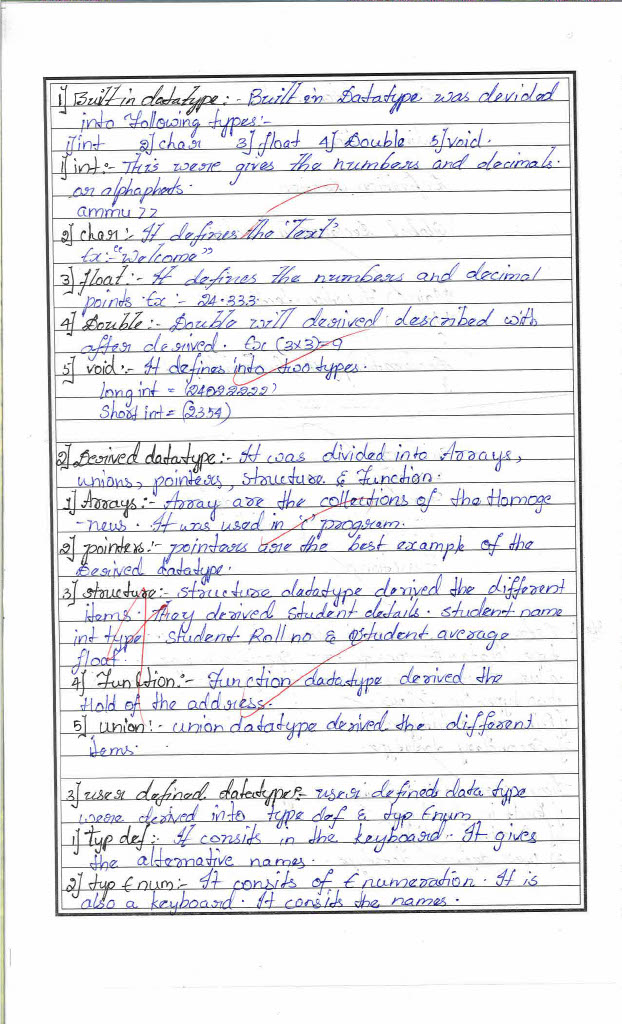 1] Built in datatype :- Built in Datatype was devided
into Following types:-
1] int 2] char 3] float 4] Double 5] void.
1] int :- This were gives the numbers and decimals.
or alphaphets.
ammu 77
2] char :- It defines the 'Text'
Ex :- "Welcome"
3] float :- It defines the numbers and decimal
points Ex :- 24.333.
4] Double :- Double will derived described with
after derived. Ex (3x3)=9
5] void :- It defines into two types.
long int = (24022222)
Short int = (2354)
2] Derived datatype :- It was divided into Arrays,
unions, pointers, structure & Function.
1] Arrays :- Array are the collections of the Homoge
-neus. It was used in 'c' program.
2] pointers :- pointers are the best example of the
Derived datatype.
3] structure :- structure datatype derived the different
items. They derived Student details. student name
int type. student Roll no & student average
float.
4] Function :- Function datatype derived the
Hold of the address.
5] union :- union datatype derived the different
items.
3] user defined datatype :- user defined data type
were derived into type def & typ Enum
1] typ def :- It consits in the keyboard. It gives
the alternative names.
2] typ Enum :- It consits of Enumeration. It is
also a keyboard. It consids the names.